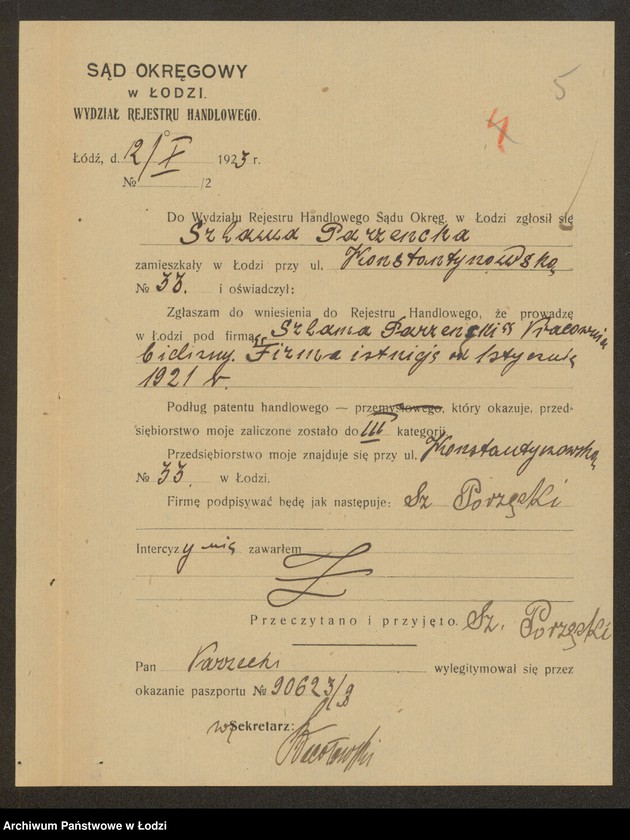 5
4
SĄD OKRĘGOWY
w ŁODZI.
WYDZIAŁ REJESTRU HANDLOWEGO.
Łódź, d. 2/X 1923 r.
№ /2
Do Wydziału Rejestru Handlowego Sądu Okręg. w Łodzi zgłosił się
Szlama Parzencka
zamieszkały w Łodzi przy ul. Konstantynowską
№ 33. i oświadczył:
Zgłaszam do wniesienia do Rejestru Handlowego, że prowadzę
w Łodzi pod firmą „Szlama Parzencki" Pracownia
bielizny. Firma istnieje od 1 stycznia
1921 r.
Podług patentu handlowego — przemysłowego, który okazuje, przed-
siębiorstwo moje zaliczone zostało do III kategorji.
Przedsiębiorstwo moje znajduje się przy ul. Konstantynowską
№ 33. w Łodzi.
Firmę podpisywać będę jak następuje: Sz Porzęski
Intercyzy nie zawarłem
Przeczytano i przyjęto. Sz. Porzęski
Pan Parzecki wylegitymował się przez
okazanie paszportu № 90623/
Sekretarz:
Archiwum Państwowe w Łodzi